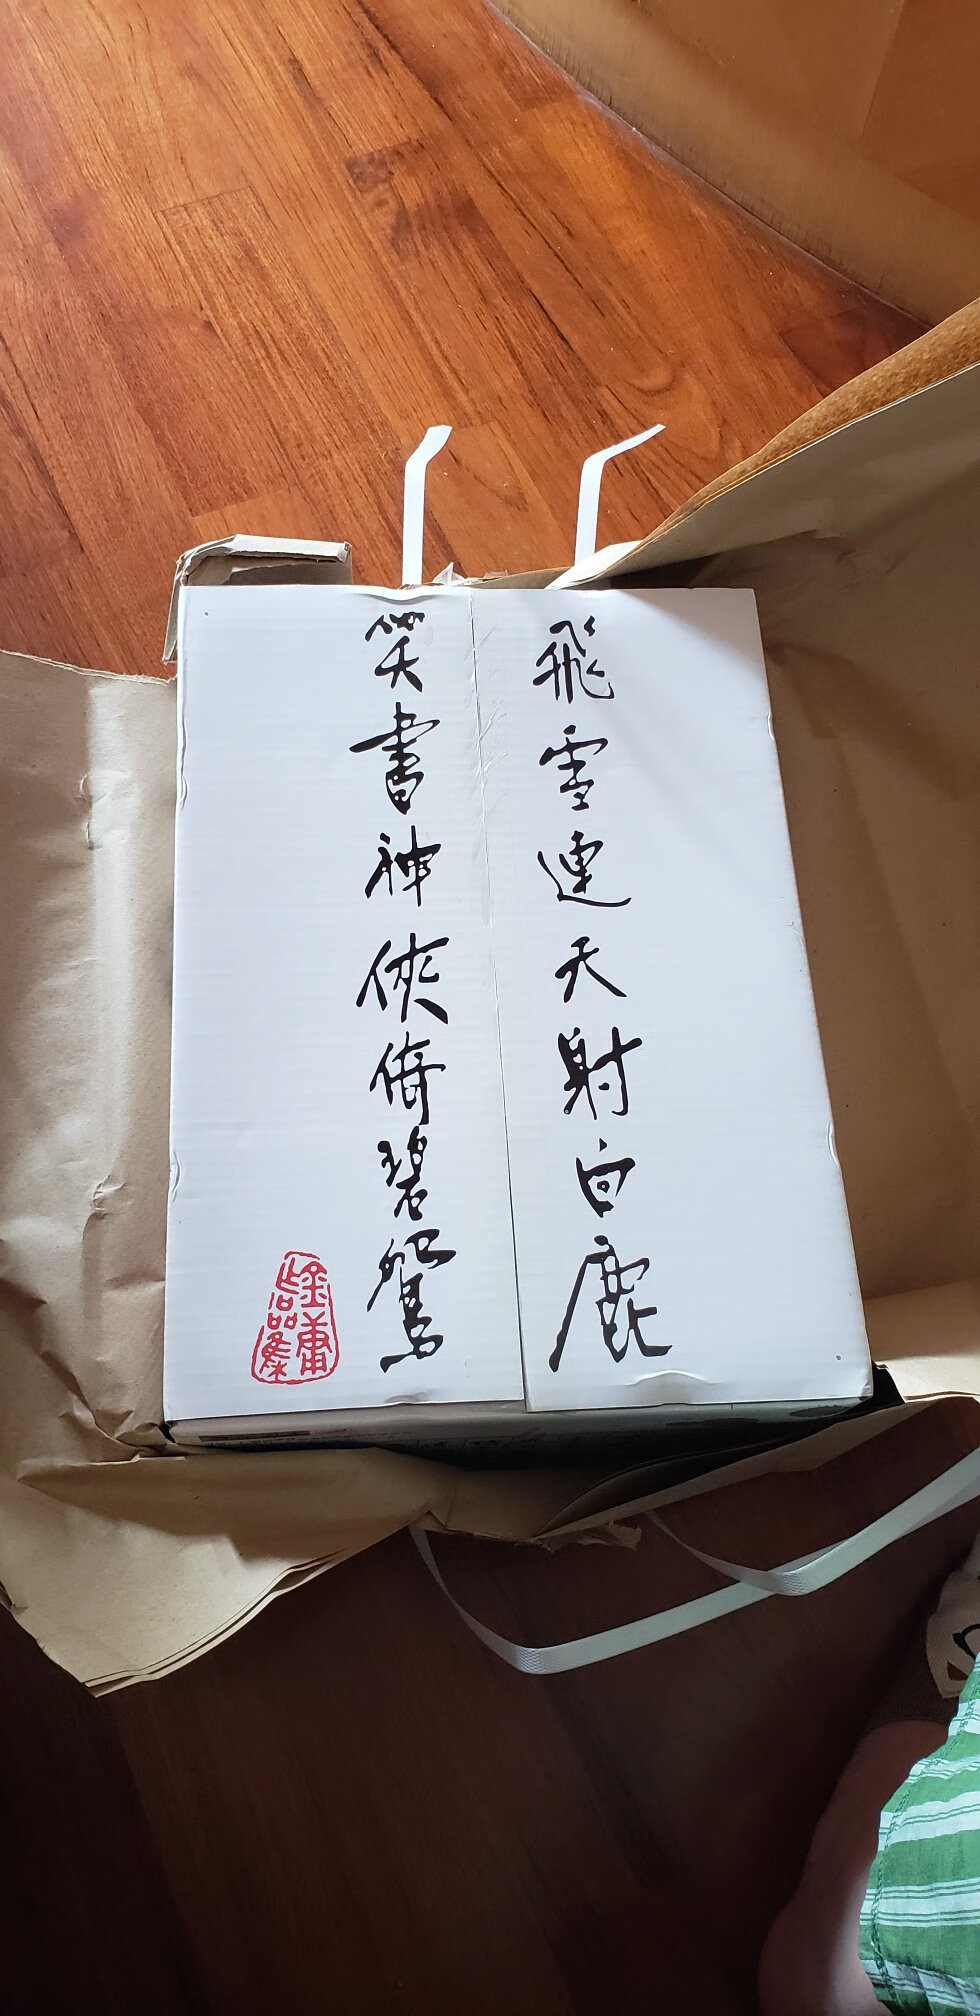 飛雪連天射白鹿
笑書神俠倚碧鴛
金庸
作品集